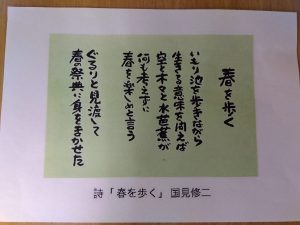 春を歩く
いもり池を歩きながら
生きる意味を問えば
空と木々と水芭蕉が
何も考えずに
春を楽しめと言う
ぐるりと見渡して
春の祭典に身をまかせた
詩「春を歩く」国見修二